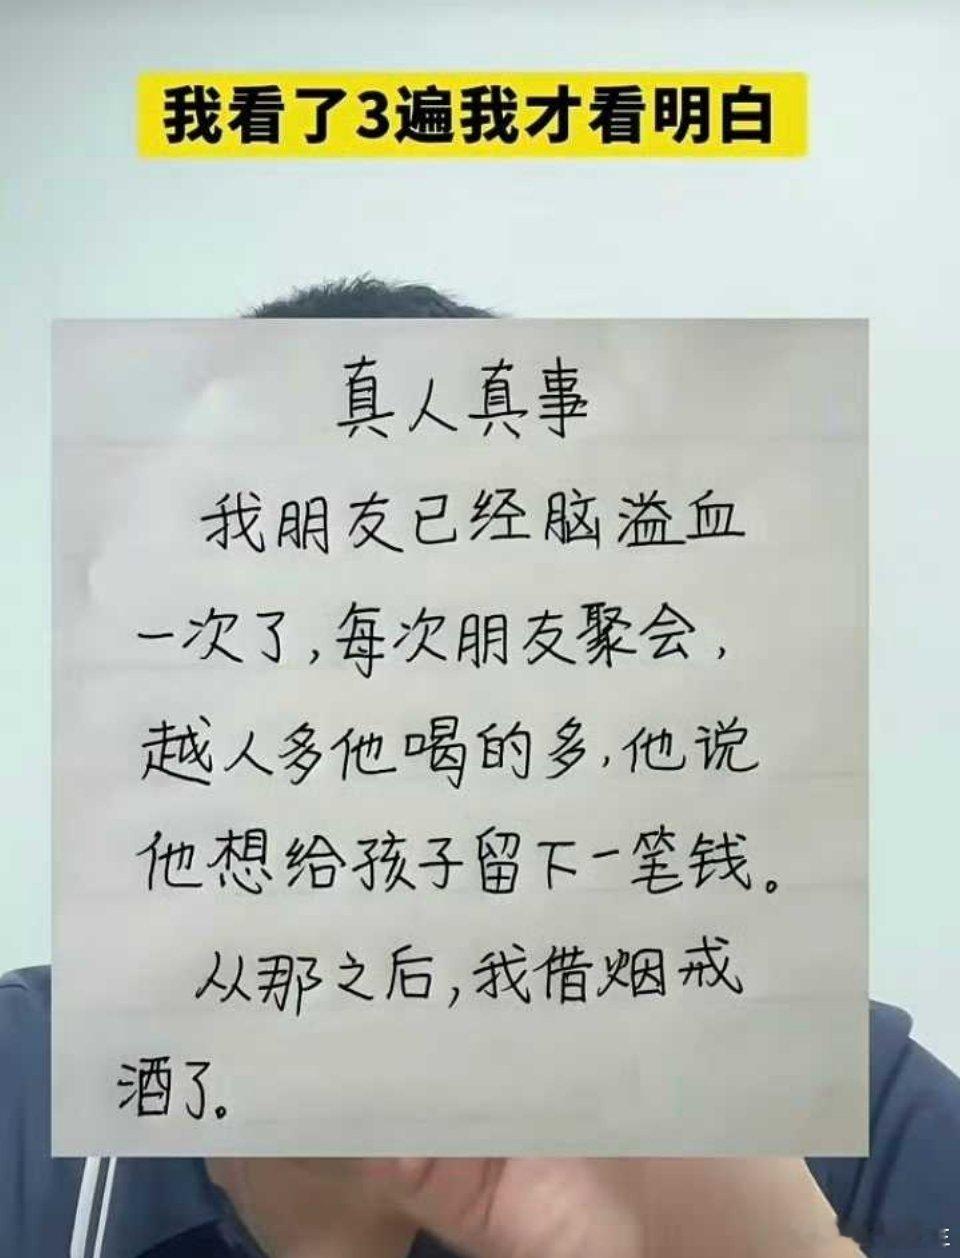 我看了3遍我才看明白
真人真事
我朋友已经脑溢血
一次了,每次朋友聚会,
越人多他喝的多,他说
他想给孩子留下一笔钱。
从那之后,我借烟戒
酒了。